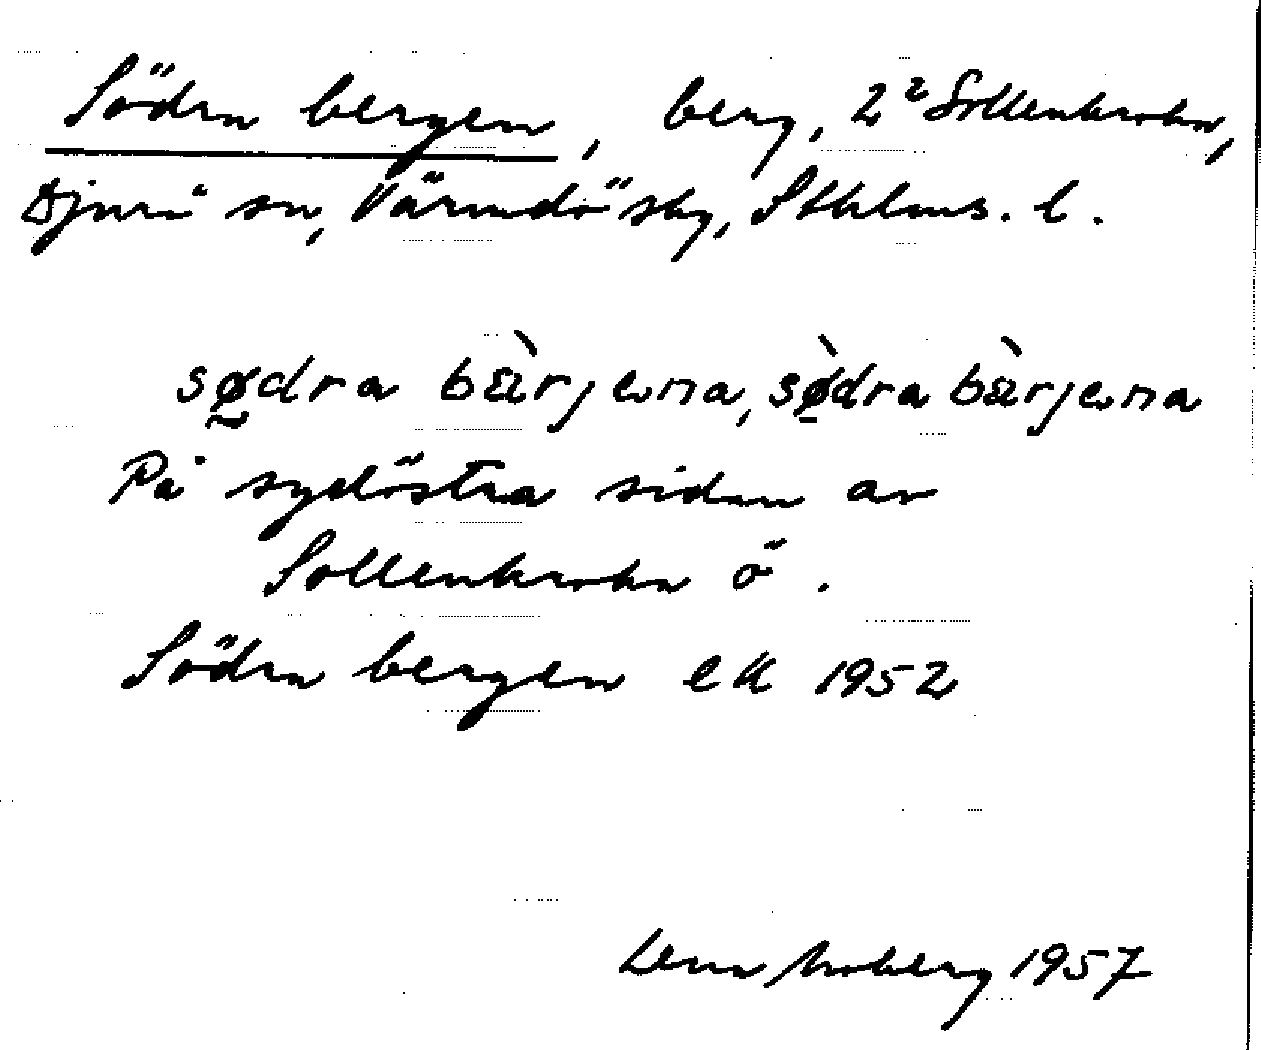 Södra bergen, berg, 2² Sollenkroka,
Djurö sn, Värmdö sky, Sthlms. l.
sødra bærjena, sødra bærjena
På sydöstra sidan av
Sollenkroka ö.
Södra bergen ek 1952
Lena Moberg 1957